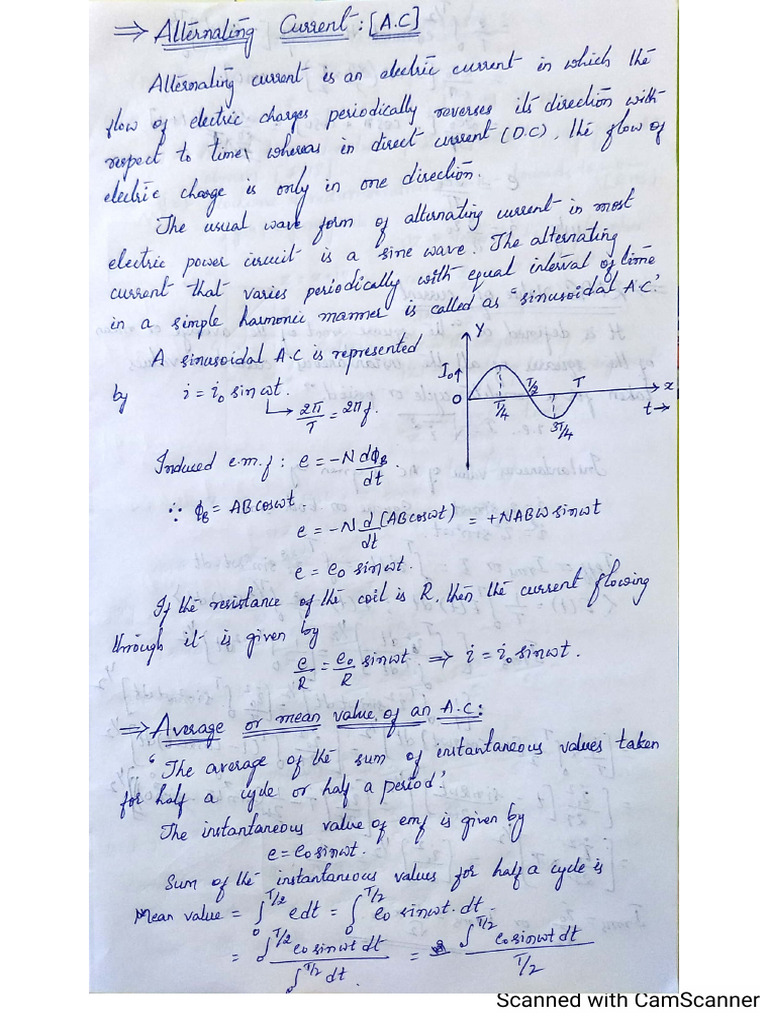 ⇒ Alternating Current : [A.C]
Alternating current is an electric current in which the
flow of electric charges periodically reverses its direction with
respect to time, whereas in direct current (D.C), the flow of
electric charge is only in one direction.
The usual wave form of alternating current in most
electric power circuit is a sine wave. The alternating
current that varies periodically with equal interval of time
in a simple harmonic manner is called as "sinusoidal A.C."
A sinusoidal A.C is represented
by i = i₀ sin ωt.
↳ 2π/T = 2πf.
Y
I₀↑
O
T/4
T/2
3T/4
T
x
t→
Induced e.m.f : e = -N dϕ_B/dt.
∵ ϕ_B = AB cos ωt.
e = -N d/dt (AB cos ωt) = +NABω sin ωt
e = e₀ sin ωt.
If the resistance of the coil is R, then the current flowing
through it is given by
e/R = e₀/R sin ωt ⇒ i = i₀ sin ωt.
⇒ Average or mean value of an A.C :
"The average of the sum of instantaneous values taken
for half a cycle or half a period."
The instantaneous value of emf is given by
e = e₀ sin ωt.
Sum of the instantaneous values for half a cycle is
Mean value = ∫₀^{T/2} e dt = ∫₀^{T/2} e₀ sin ωt. dt
= ∫₀^{T/2} e₀ sin ωt dt / ∫₀^{T/2} dt. = ∫₀^{T/2} e₀ sin ωt dt / T/2
Scanned with CamScanner